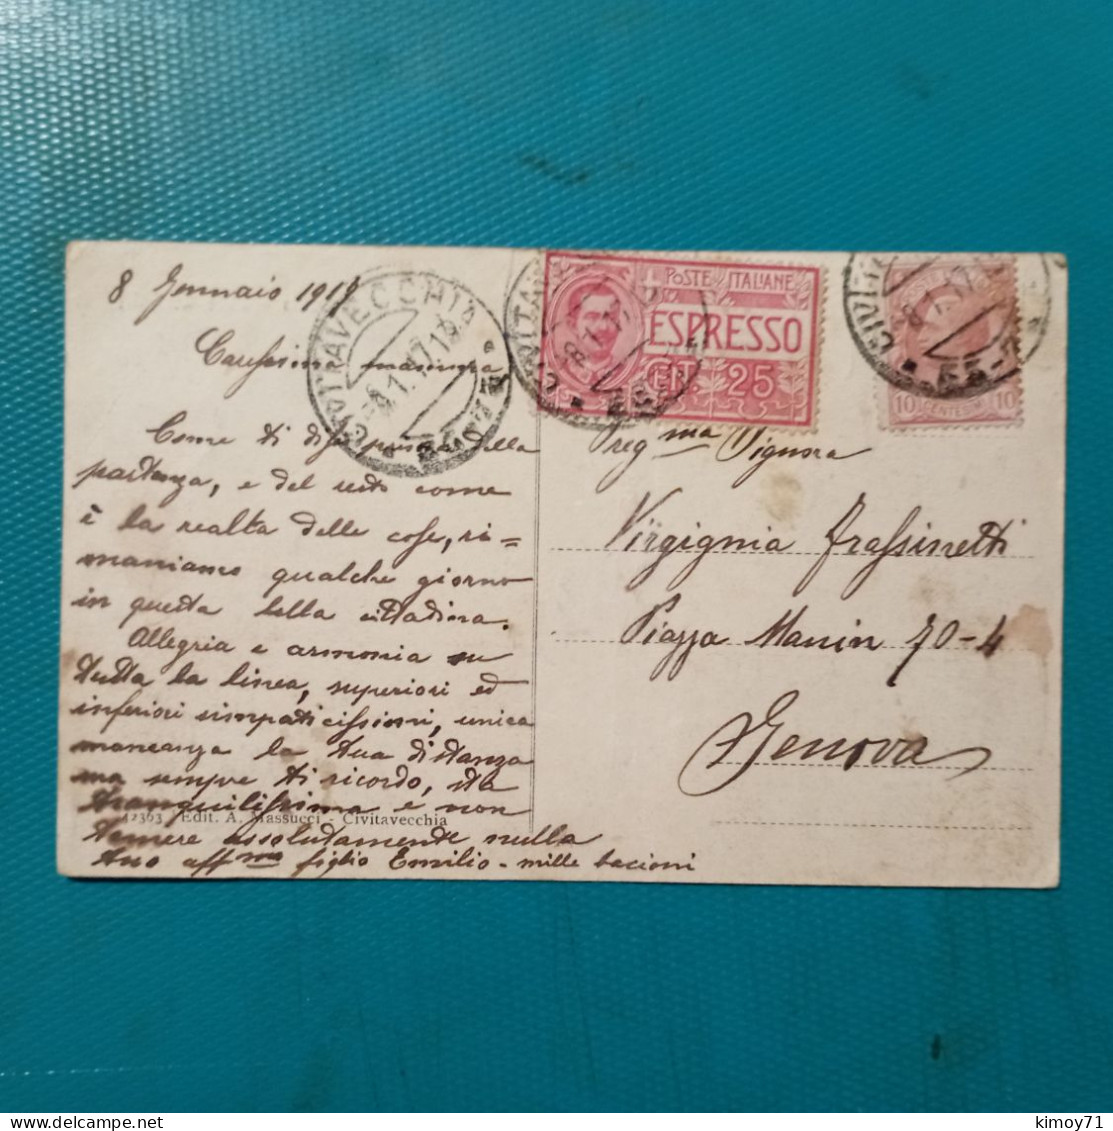 8 Gennaio 1917
Carissima mamma
Come ti dissi prima della
partenza, e del resto come
è la realtà delle cose, ri=
maniamo qualche giorno
in questa bella cittadina.
Allegria e armonia su
tutta la linea, superiori ed
inferiori simpaticissimi, unica
mancanza la tua distanza
ma sempre ti ricordo, sta
tranquillissima e non
temere assolutamente nulla
tuo affmo figlio Emilio - mille bacioni
12363 Edit. A. Massucci - Civitavecchia
CIVITAVECCHIA
8.1.17.18
POSTE ITALIANE
ESPRESSO
CENT. 25
10 CENTESIMI 10
Pregma Signora
Virgignia Frassinetti
Piazza Manin 70-4
Genova
kimoy71